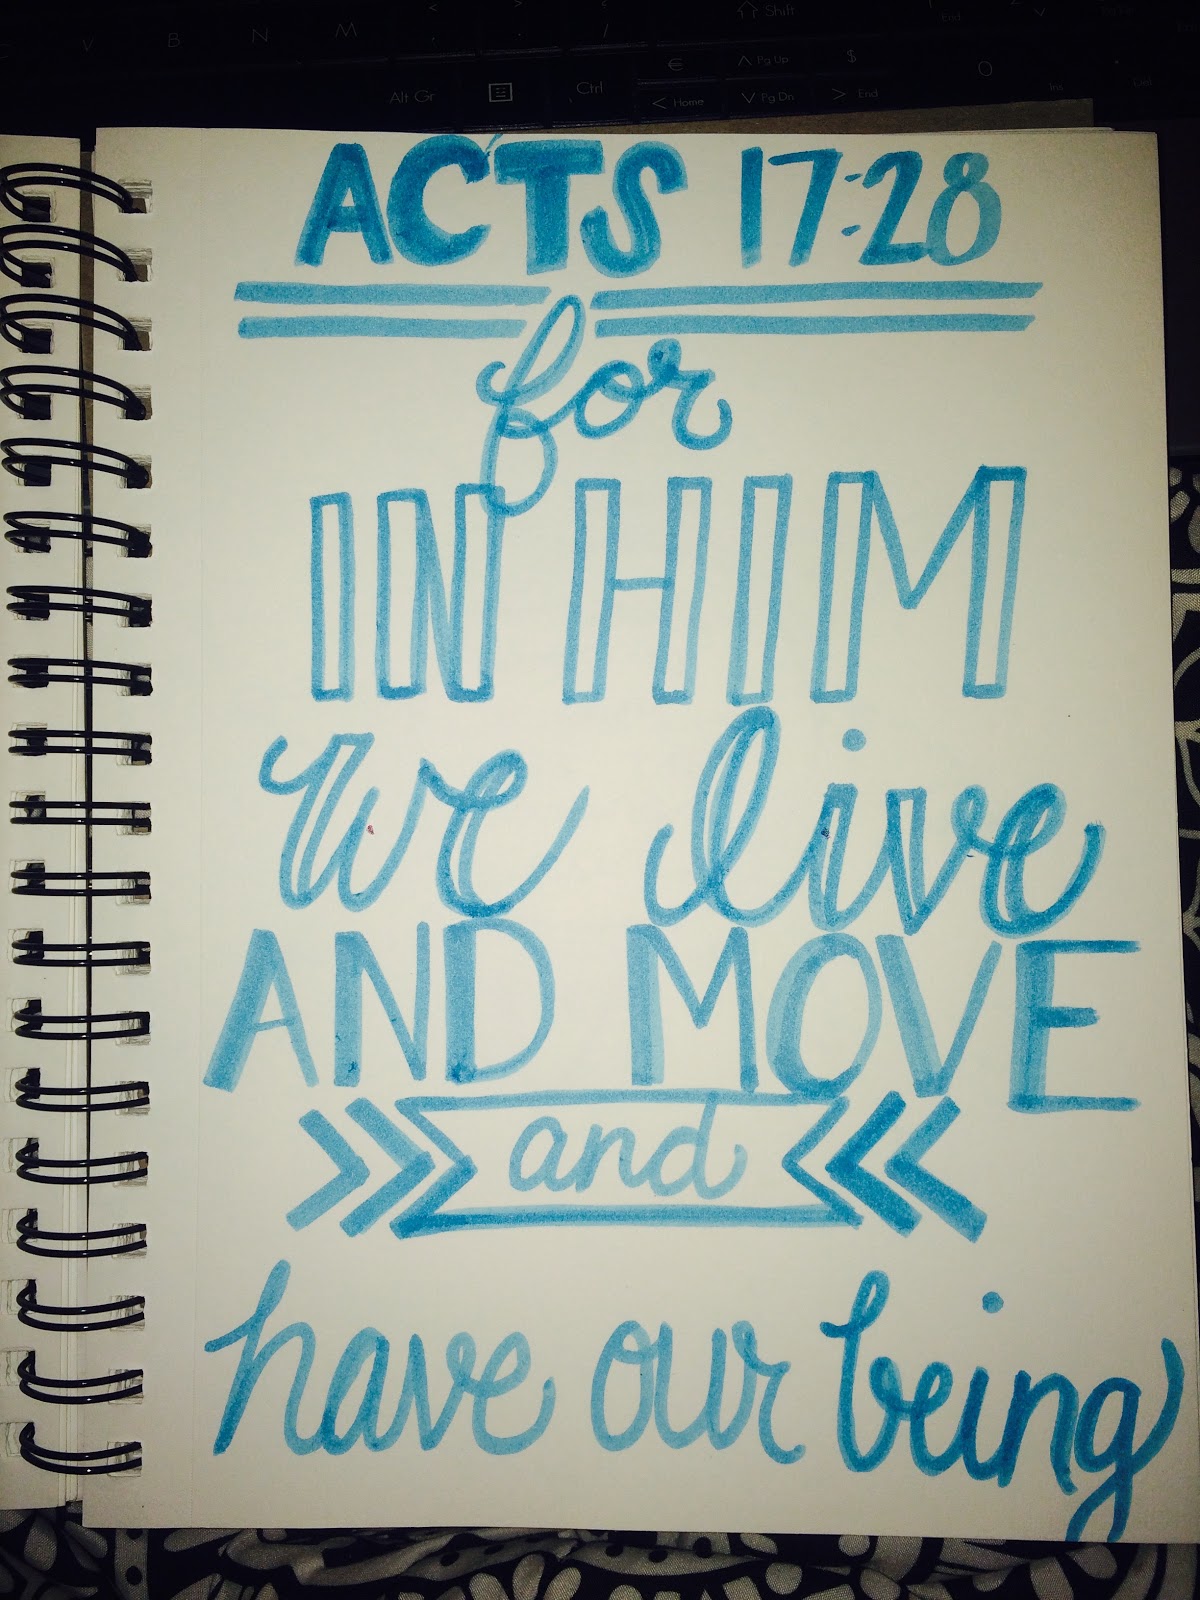 V B N M < > ? ⇧ Shift End
Alt Gr Ctrl € ∧ Pg Up $
< Home ∨ Pg Dn > End O Ins Del
ACTS 17:28
for
IN HIM
We live
AND MOVE
and
have our being